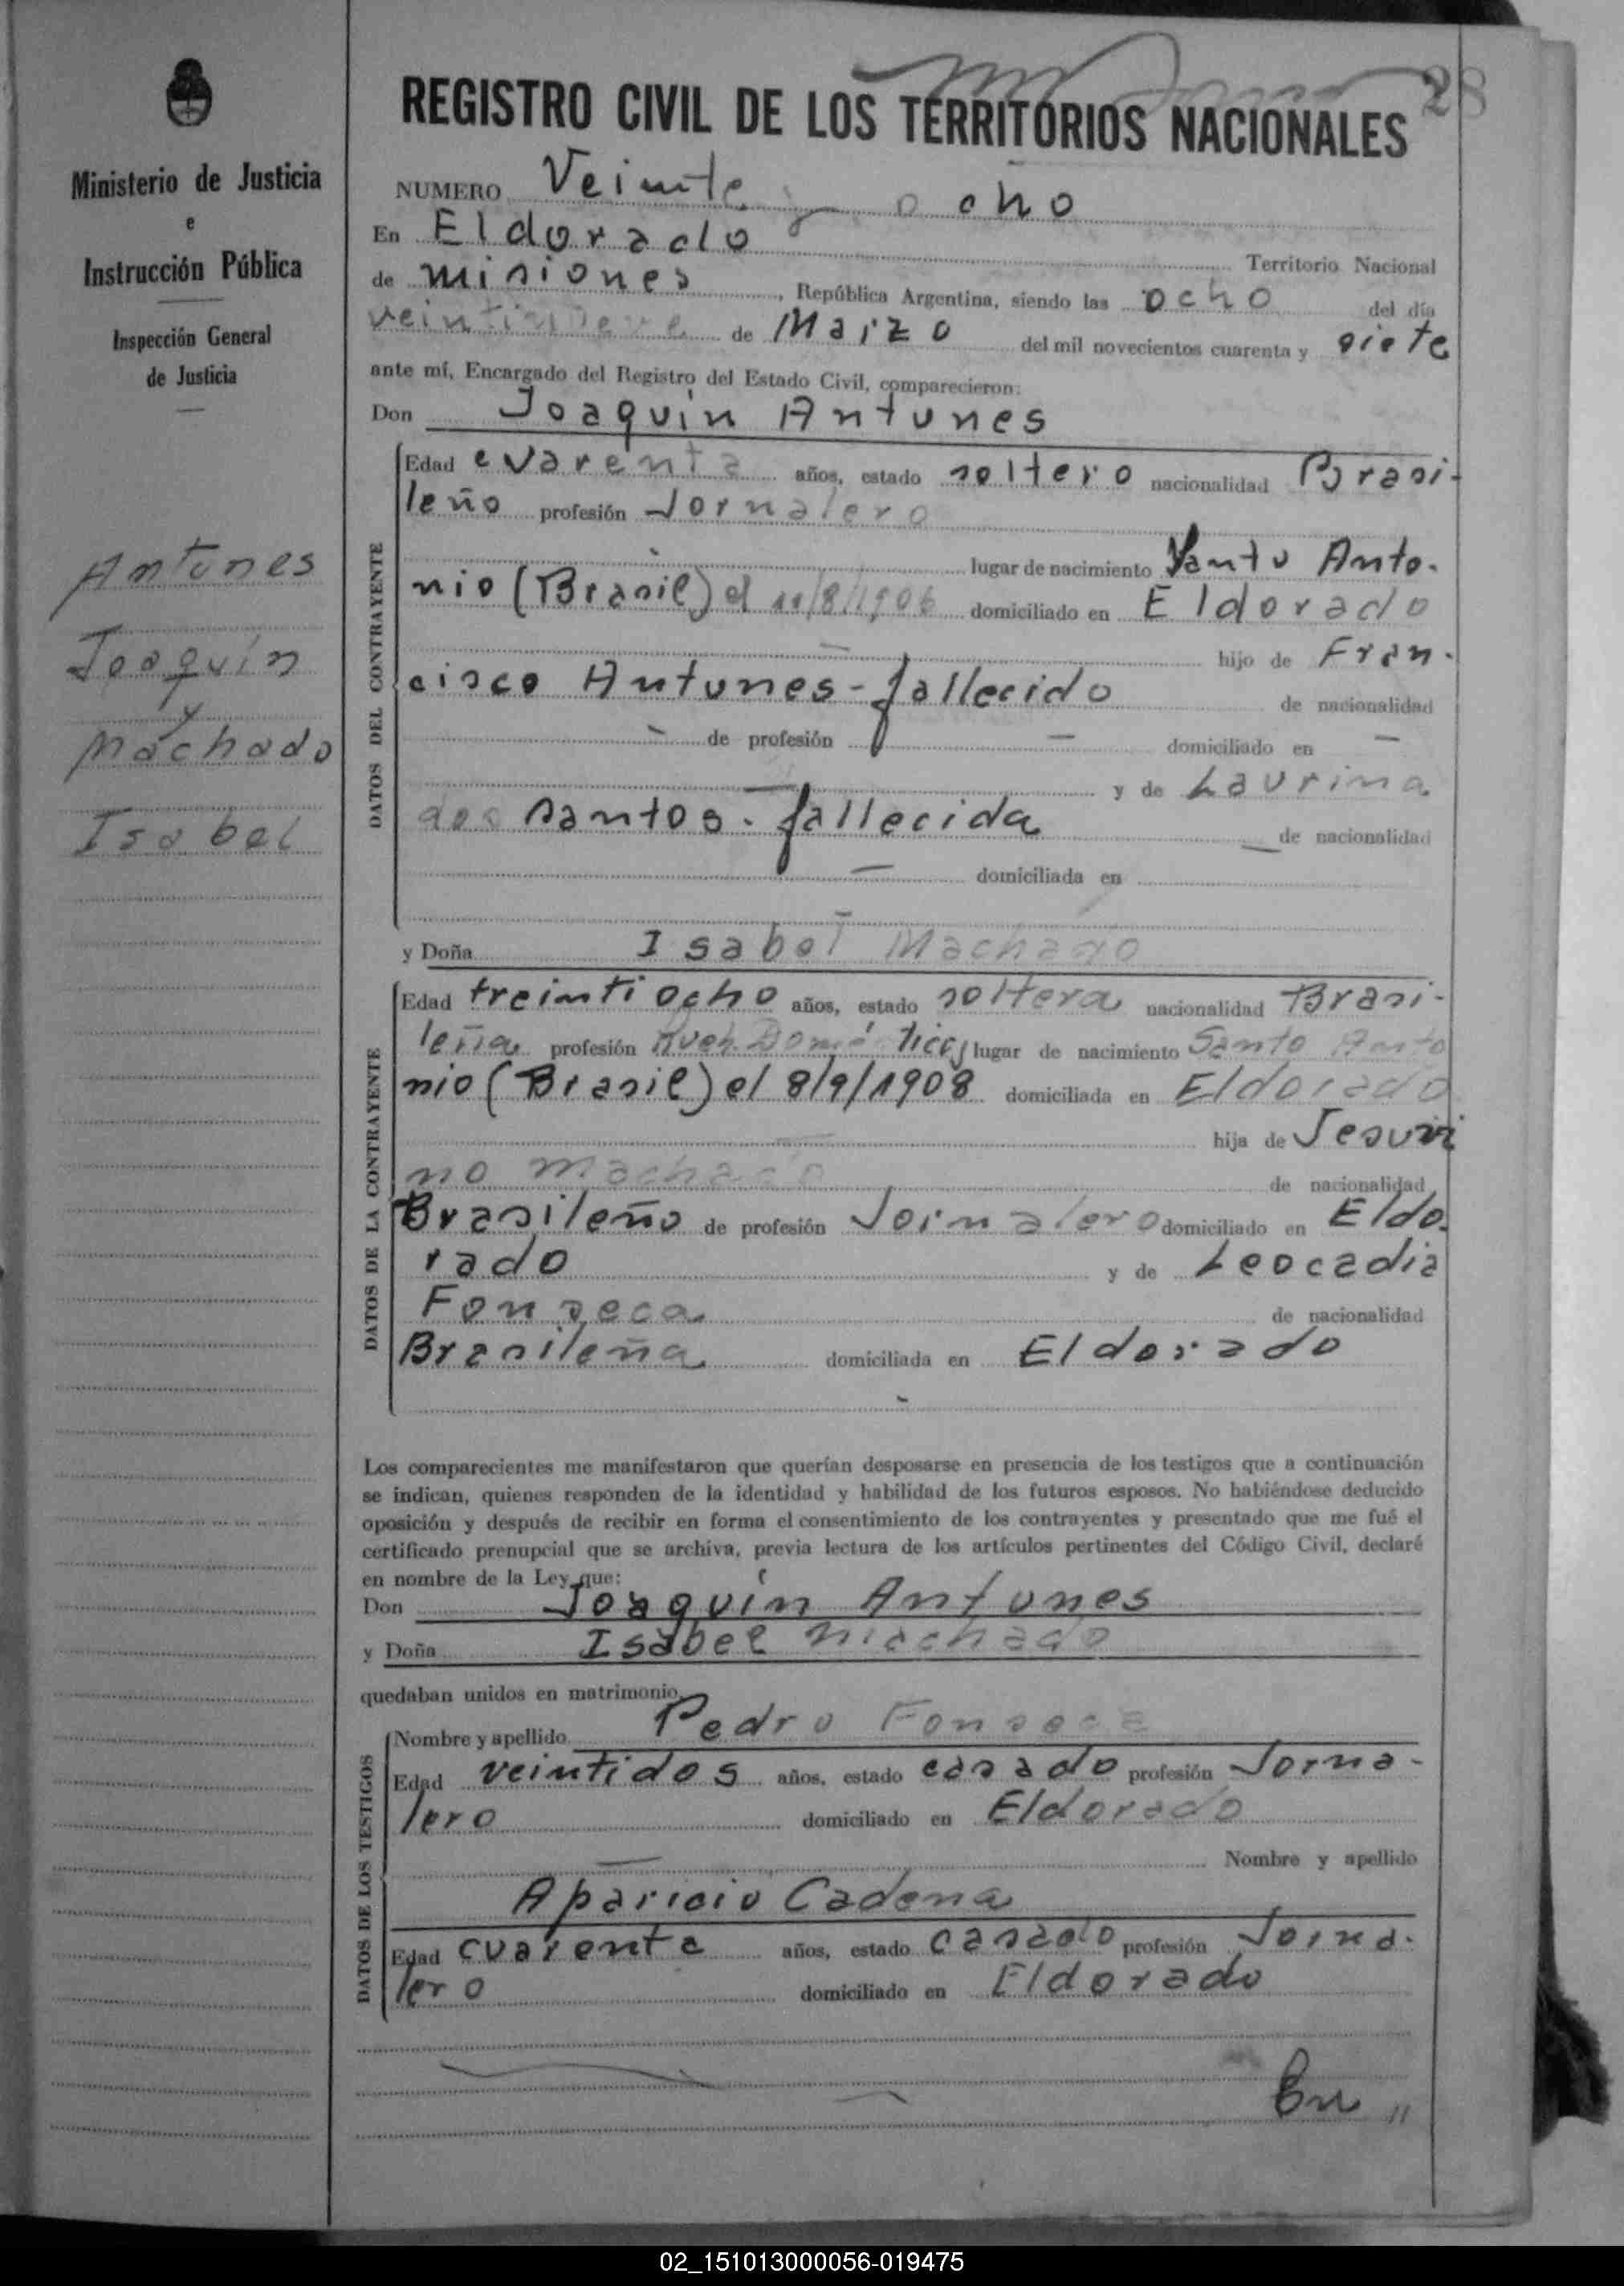 28
REGISTRO CIVIL DE LOS TERRITORIOS NACIONALES
Ministerio de Justicia
e
Instrucción Pública
Inspección General
de Justicia
Antunes
Joaquín
y
Machado
Isabel
NUMERO Veinte y ocho
En Eldorado Territorio Nacional
de Misiones, República Argentina, siendo las ocho del día
veintinueve de Marzo del mil novecientos cuarenta y siete
ante mí, Encargado del Registro del Estado Civil, comparecieron:
Don Joaquín Antunes
DATOS DEL CONTRAYENTE
Edad cuarenta años, estado soltero nacionalidad Brasi-
leño profesión Jornalero
lugar de nacimiento Santo Anto-
nio (Brasil) el 11/8/1906 domiciliado en Eldorado
hijo de Fran-
cisco Antunes - fallecido de nacionalidad
- de profesión - domiciliado en -
y de Laurina
dos santos - fallecida de nacionalidad
domiciliada en
y Doña Isabel Machado
DATOS DE LA CONTRAYENTE
Edad treintiocho años, estado soltera nacionalidad Brasi-
leña profesión lugar de nacimiento Santo Anto
nio (Brasil) el 8/9/1908 domiciliada en Eldorado
hija de Jesuvi
no Machado de nacionalidad
Brasileño de profesión Jornalero domiciliado en Eldo-
rado y de Leocadia
Fonseca de nacionalidad
Brasileña domiciliada en Eldorado
Los comparecientes me manifestaron que querían desposarse en presencia de los testigos que a continuación
se indican, quienes responden de la identidad y habilidad de los futuros esposos. No habiéndose deducido
oposición y después de recibir en forma el consentimiento de los contrayentes y presentado que me fué el
certificado prenupcial que se archiva, previa lectura de los artículos pertinentes del Código Civil, declaré
en nombre de la Ley que:
Don Joaquín Antunes
y Doña Isabel Machado
quedaban unidos en matrimonio.
DATOS DE LOS TESTIGOS
Nombre y apellido Pedro Fonseca
Edad veintidos años, estado casado profesión Jorna-
lero domiciliado en Eldorado
Nombre y apellido
Aparicio Cadena
Edad cuarenta años, estado casado profesión Jorna-
lero domiciliado en Eldorado
En "
02_151013000056-019475